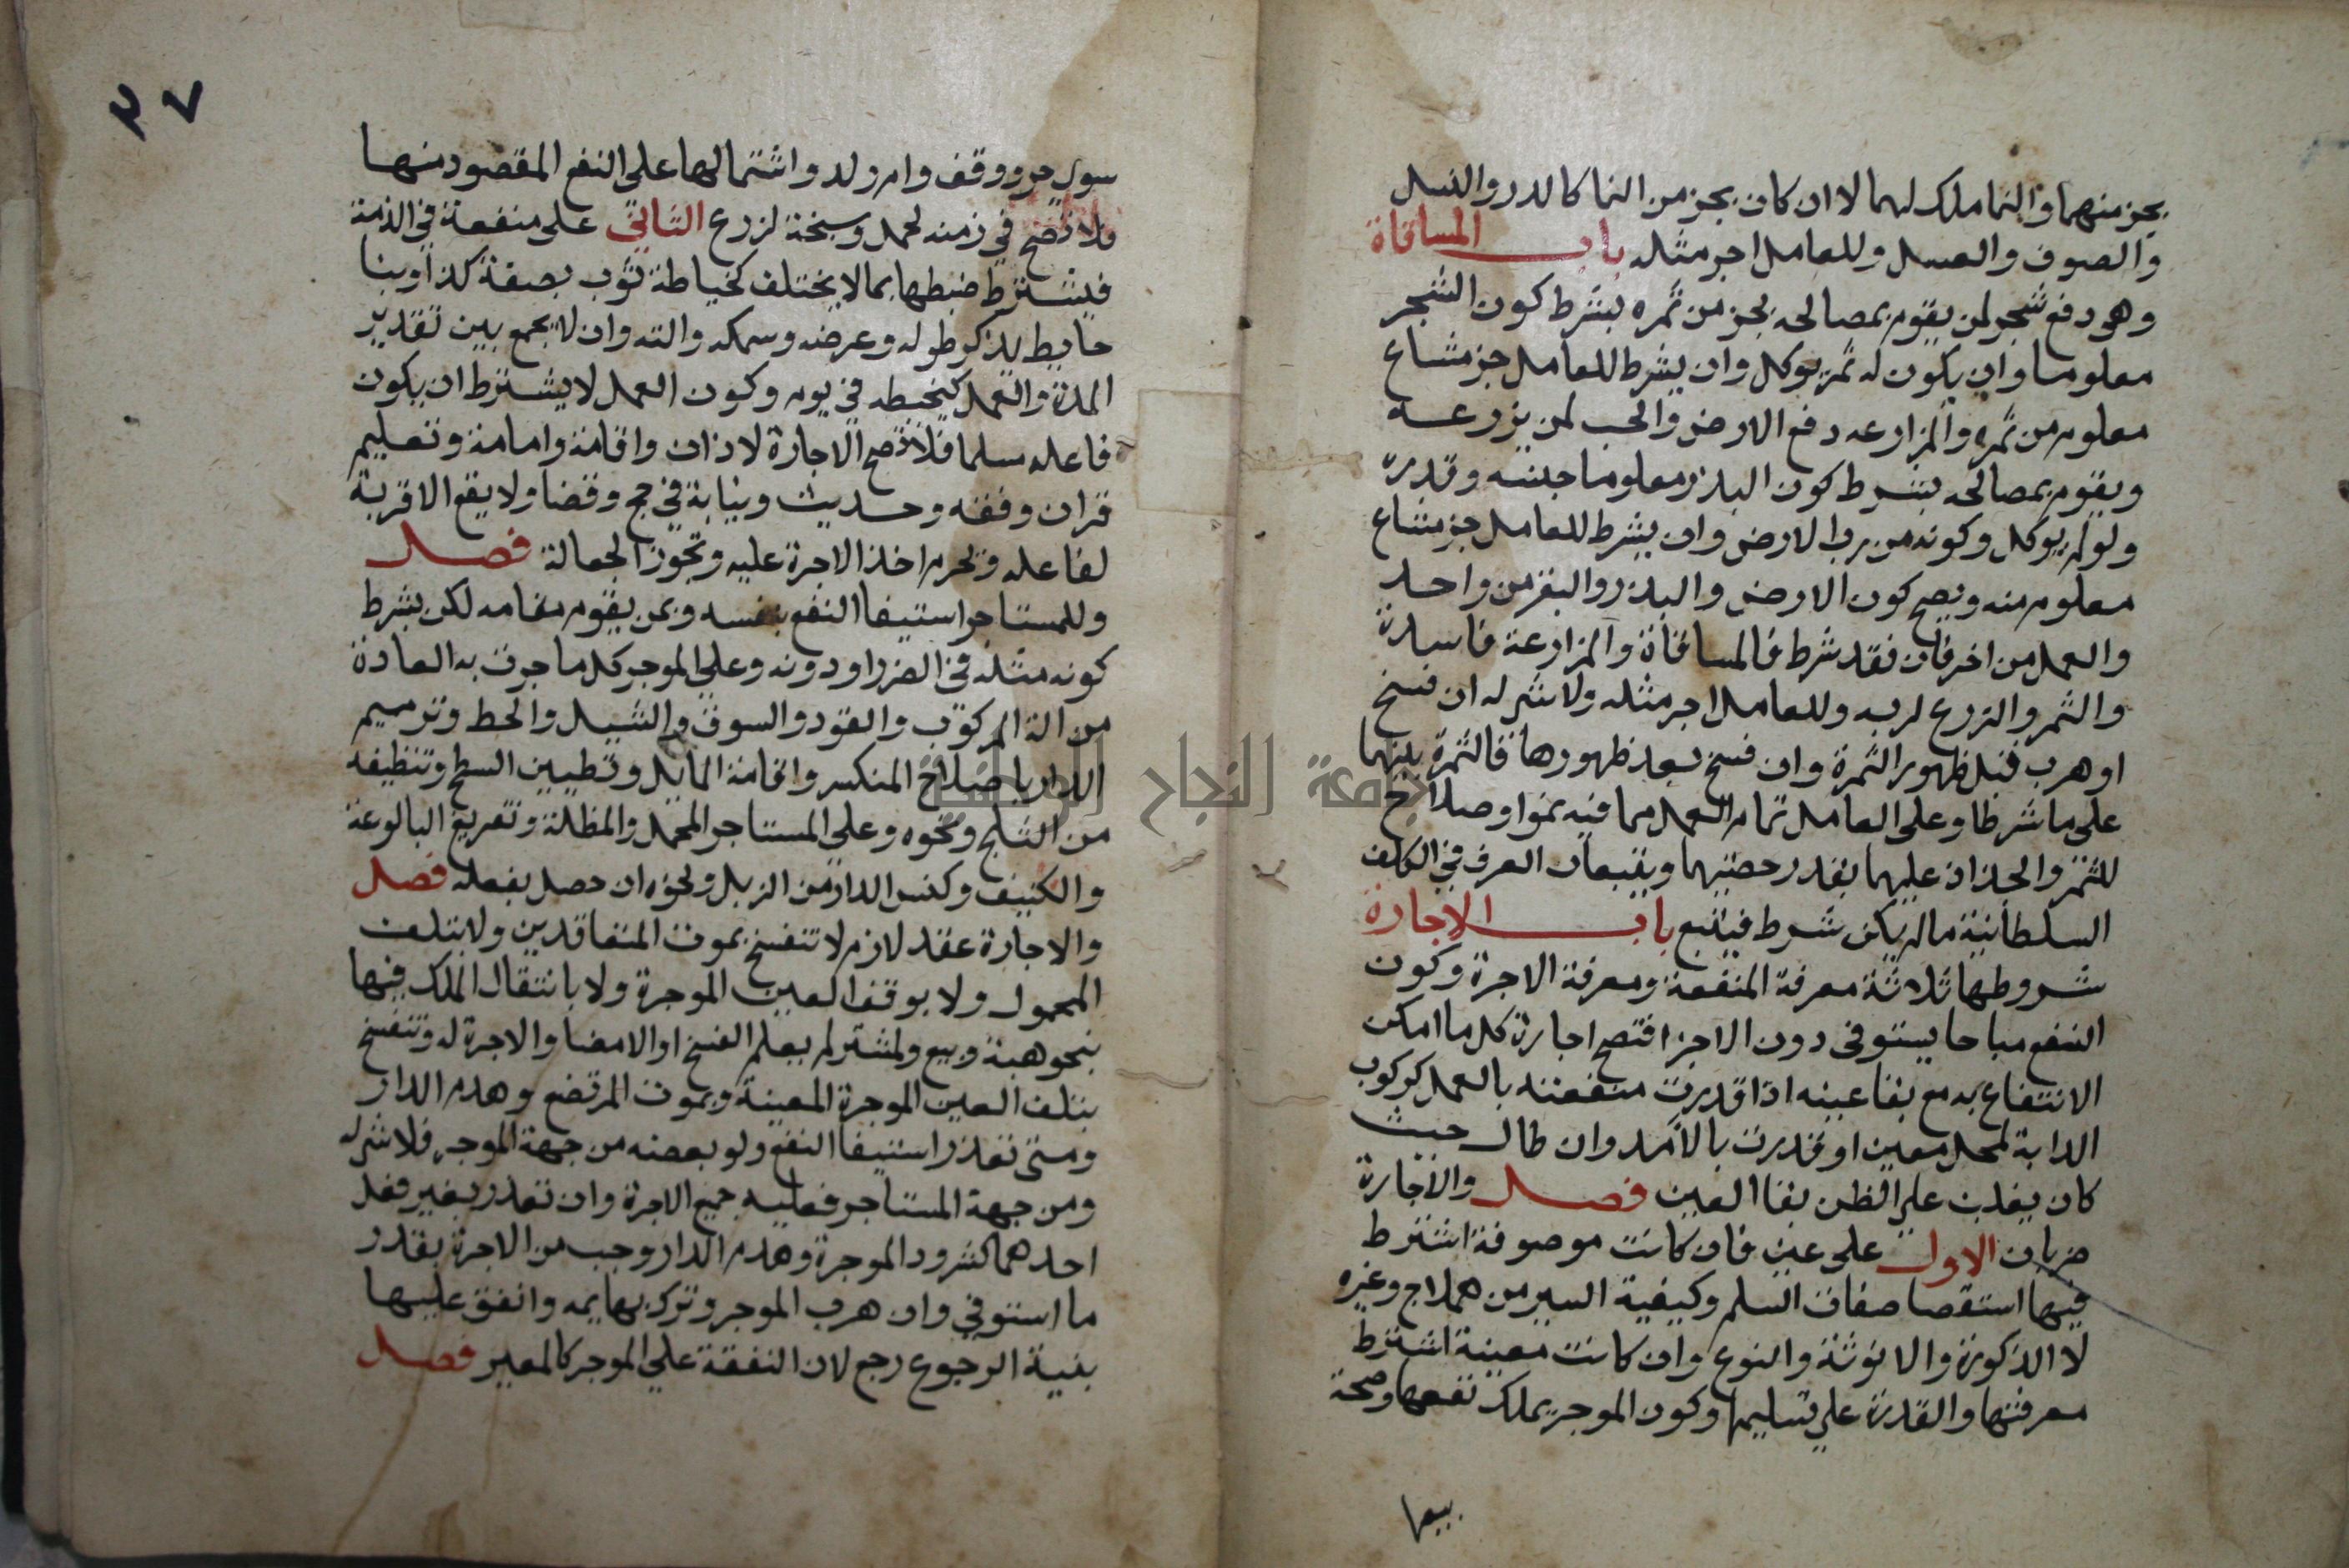 بجز منهما والنما ملك لهما لا ان كان بجز من النما كالدر والنسل
والصوف والعسل وللعامل اجر مثله باب المساقاة
وهي دفع شجر لمن يقوم بمصالحه بجز من ثمره بشرط كون الشجر
معلوما وان يكون له ثمر يوكل وان يشرط للعامل جز مشاع
معلوم من ثمره والمزارعه دفع الارض والحب لمن يزرعه
ويقوم بمصالحه بشرط كون البذر معلوما جنسه وقدره
ولو لم يوكل وكونه من رب الارض وان يشرط للعامل جز مشاع
معلوم منه ويصح كون الارض والبذر والبقر من واحد
والعمل من اخر فان فقد شرط فالمساقاة والمزارعة فاسدة
والثمر والزرع لربه وللعامل اجر مثله ولا شي له ان فسخ
او هرب قبل ظهور الثمرة وان فسخ بعد ظهورها فالثمرة بينهما
على ما شرطا وعلى العامل تمام العمل مما فيه نموا وصلاح
للثمر والجذاذ عليهما بقدر حصتيهما ويتبعان العرف في الكلف
السلطانية ما لم يكن شرط فيتبع باب الاجارة
شروطها ثلاثة معرفة المنفعة ومعرفة الاجرة وكون
النفع مباحا يستوفى دون الاجزا فتصح اجارة كل ما امكن
الانتفاع به مع بقا عينه اذا قدرت منفعته بالعمل كركوب
الدابة لمحل معين او قدرت بالامد وان طال حيث
كان يغلب على الظن بقا العين فصل والاجارة
ضربان الاول على عين فان كانت موصوفة اشترط
فيها استقصا صفات السلم وكيفية السير من هملاج وغيره
لا الذكورة والانوثة والنوع وان كانت معينة اشترط
معرفتها والقدرة على تسليمها وكون الموجر يملك نفعها وصحة
بيعها
٣٧
سوى حر ووقف وام ولد واشتمالها على النفع المقصود منها
فلا تصح في زمنه لحمل وسبخة لزرع الثاني على منفعة في الذمة
فيشترط ضبطها بما لا يختلف كخياطة ثوب بصفة كذا وبنا
حايط يذكر طوله وعرضه وسمكه والته وان لا يجمع بين تقدير
المدة والعمل كيخيطه في يوم وكون العمل لا يشترط ان يكون
فاعله مسلما فلا تصح الاجارة لاذان واقامة وامامة وتعليم
قران وفقه وحديث ونيابة في حج وقضا ولا يقع الا قربة
لفاعله ويحرم اخذ الاجرة عليه وتجوز الجعالة فصل
وللمستاجر استيفا النفع بنفسه وبمن يقوم مقامه لكن بشرط
كونه مثله في الضرر او دونه وعلى الموجر كل ما جرت به العادة
من الة المركوب والقود والسوق والشيل والحط وترميم
الدار باصلاح المنكسر واقامة المايل وتطيين السطح وتنظيفه
من الثلج ونحوه وعلى المستاجر المحمل والمظلة وتفريغ البالوعة
والكنيف وكنس الدار من الزبل ونحوه ان حصل بفعله فصل
والاجارة عقد لازم لا تنفسخ بموت المتعاقدين ولا بتلف
المحمول ولا بوقف العين الموجرة ولا بانتقال الملك فيها
بنحو هبة وبيع ولمشتر لم يعلم الفسخ او الامضا والاجرة له وتنفسخ
بتلف العين الموجرة المعينة وبموت المرتضع وهدم الدار
ومتى تعذر استيفا النفع ولو بعضه من جهة الموجر فلا شي له
ومن جهة المستاجر فعليه جميع الاجرة وان تعذر بغير فعل
احدهما كشرود الموجرة وهدم الدار وجب من الاجرة بقدر
ما استوفي وان هرب الموجر وترك بهايمه وانفق عليها
بنية الرجوع رجع لان النفقة على الموجر كالمعير فصل
جامعة النجاح الوطنية